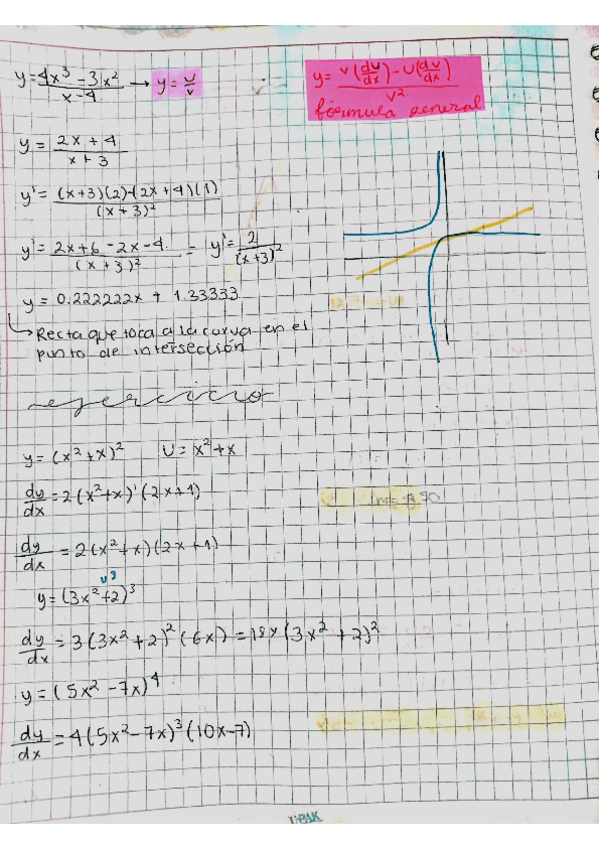 y = 4x³ - 3x² / x - 4 → y = u/v
y = v(du/dx) - u(dv/dx) / v²
fórmula general
y = 2x + 4 / x + 3
y' = (x+3)(2)-(2x+4)(1) / (x+3)²
y' = 2x+6-2x-4 / (x+3)² = y' = 2 / (x+3)²
y = 0.222222x + 1.33333
Recta que toca a la curva en el
punto de intersección
ejercicio
y = (x²+x)² U = x²+x
dy/dx = 2(x²+x)¹(2x+1)
dy/dx = 2(x²+x)(2x+1)
u³
y = (3x²+2)³
dy/dx = 3(3x²+2)²(6x) = 18x(3x²+2)²
y = (5x²-7x)⁴
dy/dx = 4(5x²-7x)³(10x-7)